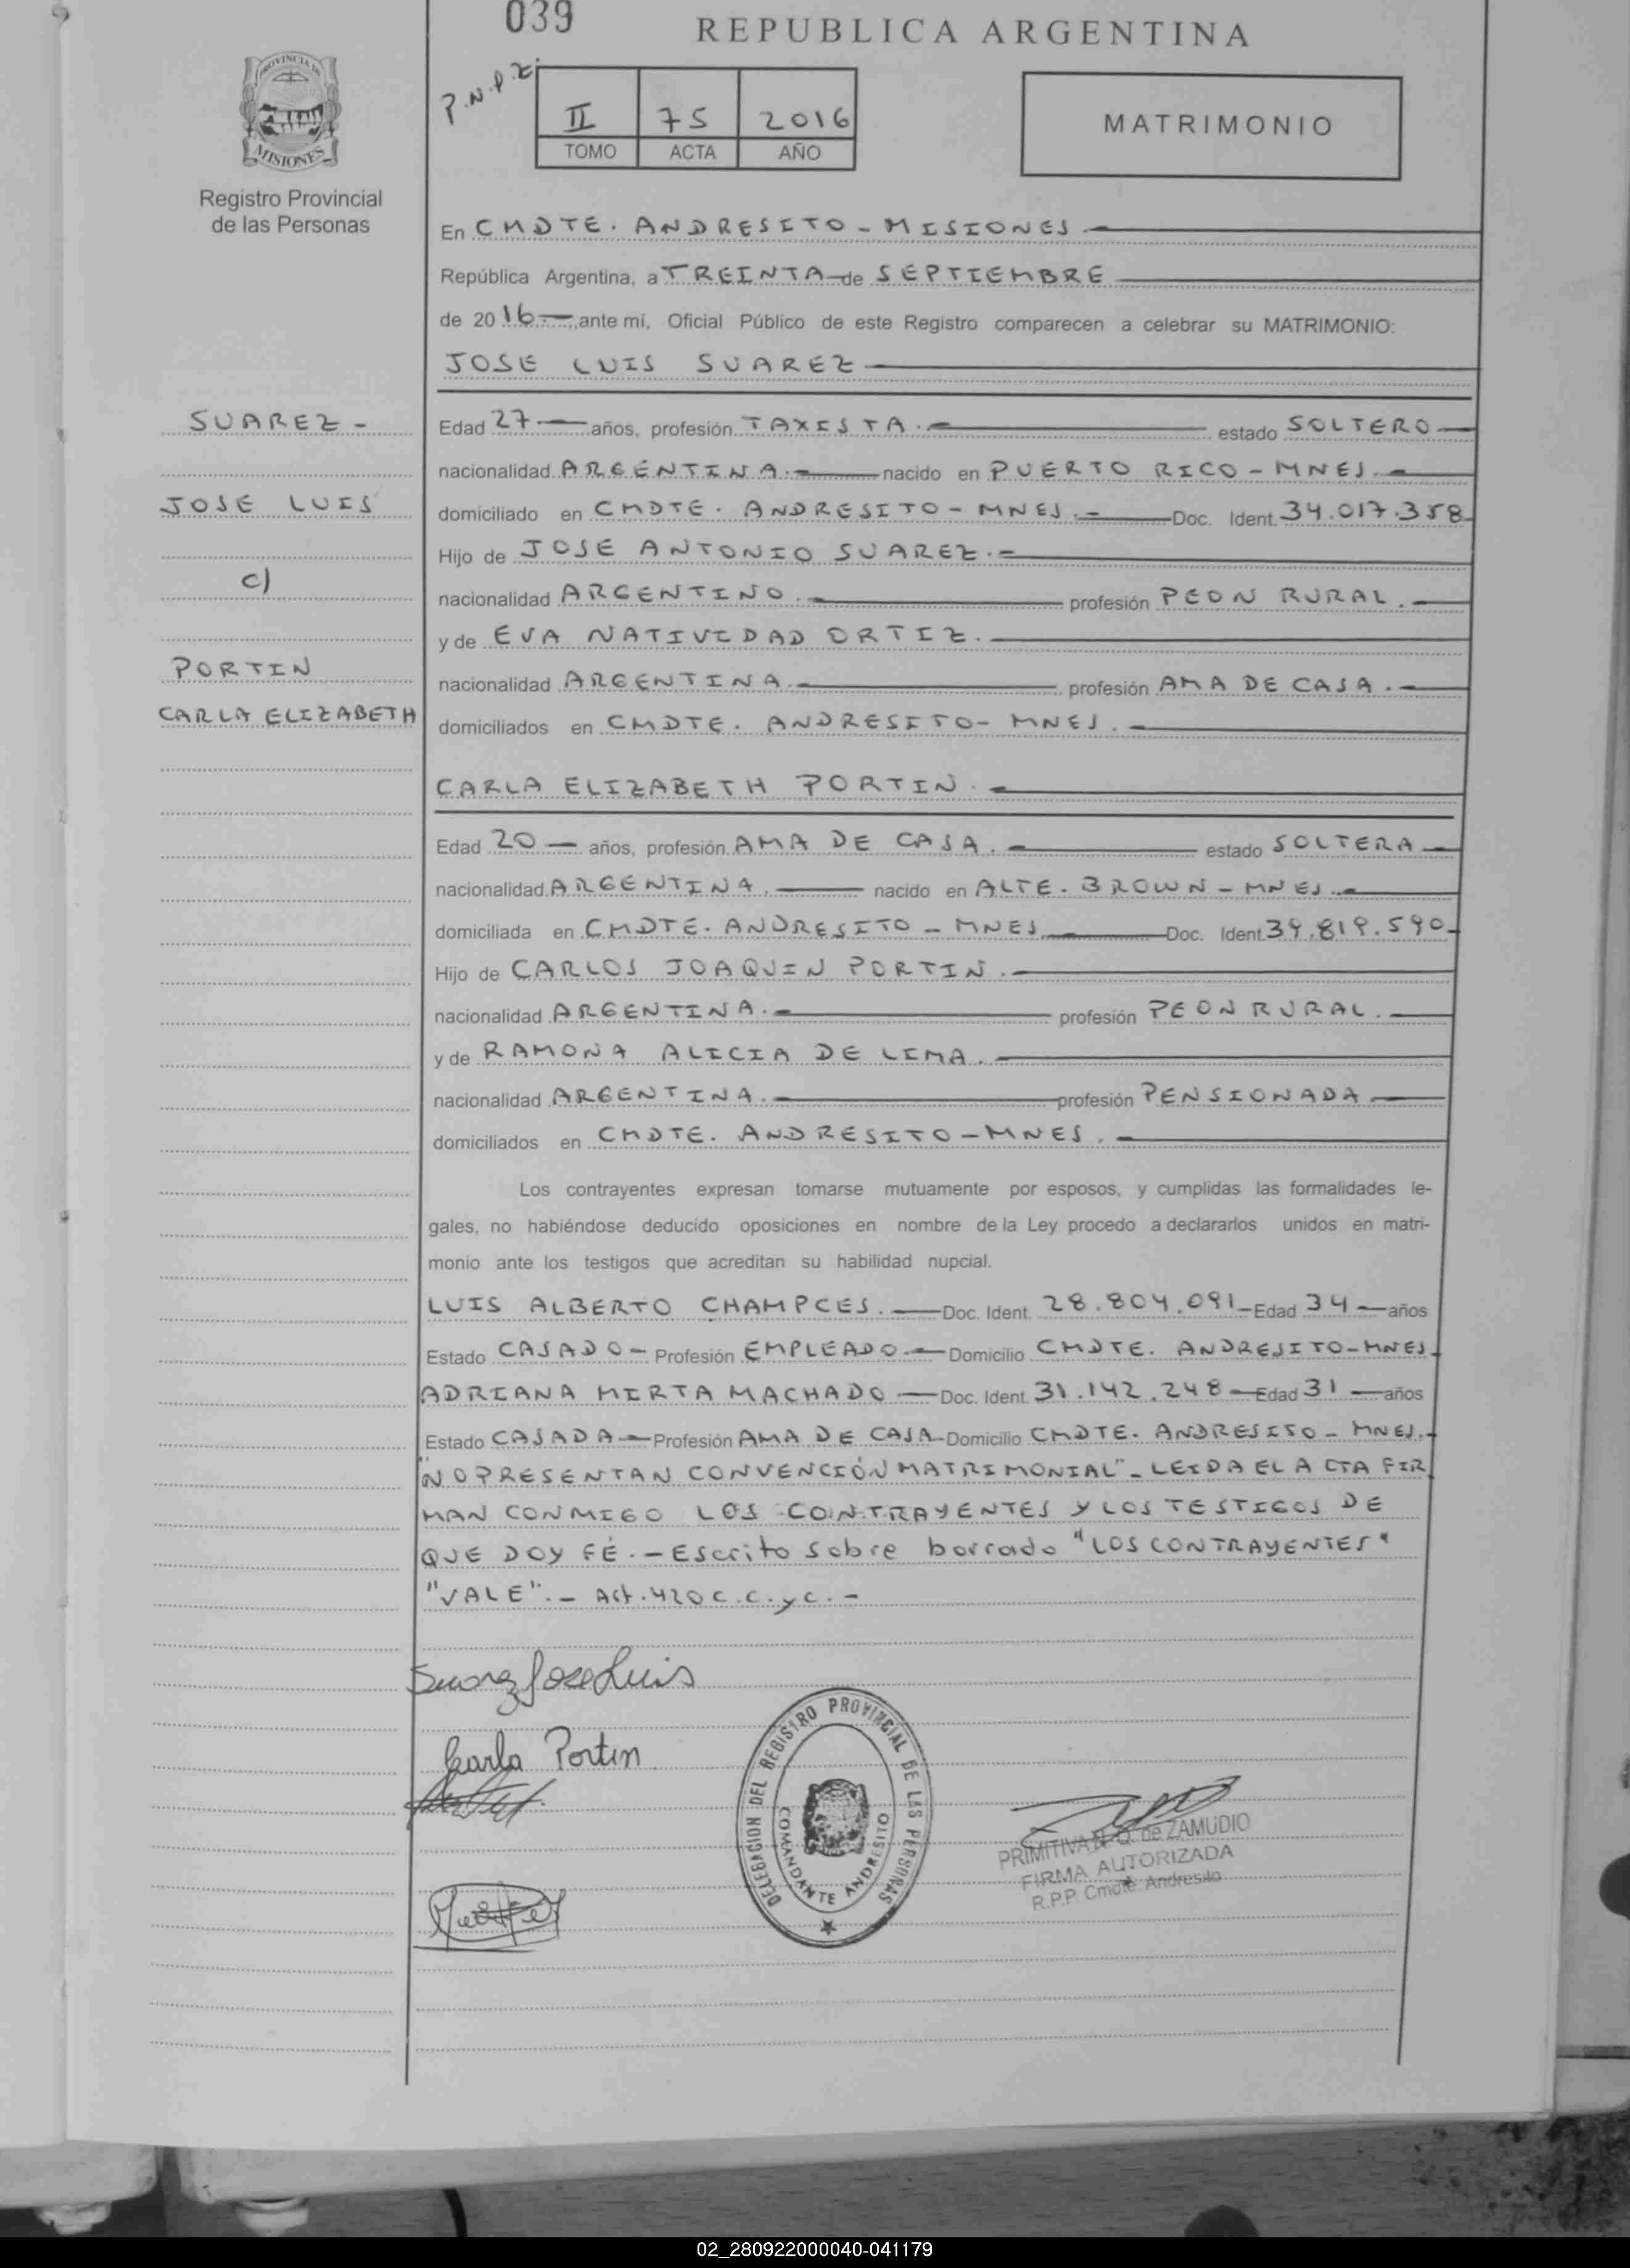 039
REPUBLICA ARGENTINA
P.N.P.Z.
II 75 2016
TOMO ACTA AÑO
MATRIMONIO
PROVINCIA DE
MISIONES
Registro Provincial
de las Personas
En CMDTE. ANDRESITO - MISIONES
República Argentina, a TREINTA de SEPTIEMBRE
de 2016 ,ante mí, Oficial Público de este Registro comparecen a celebrar su MATRIMONIO:
JOSE LUIS SUAREZ
SUAREZ -
JOSE LUIS
c)
PORTIN
CARLA ELIZABETH
Edad 27 años, profesión TAXISTA. estado SOLTERO
nacionalidad ARGENTINA. nacido en PUERTO RICO - MNES.
domiciliado en CMDTE. ANDRESITO - MNES. Doc. Ident. 34.017.358
Hijo de JOSE ANTONIO SUAREZ.
nacionalidad ARGENTINO. profesión PEON RURAL.
y de EVA NATIVIDAD ORTIZ.
nacionalidad ARGENTINA. profesión AMA DE CASA.
domiciliados en CMDTE. ANDRESITO - MNES.
CARLA ELIZABETH PORTIN.
Edad 20 años, profesión AMA DE CASA. estado SOLTERA
nacionalidad ARGENTINA. nacido en ALTE. BROWN - MNES.
domiciliada en CMDTE. ANDRESITO - MNES Doc. Ident. 39.819.590
Hijo de CARLOS JOAQUIN PORTIN.
nacionalidad ARGENTINA. profesión PEON RURAL.
y de RAMONA ALICIA DE LIMA.
nacionalidad ARGENTINA. profesión PENSIONADA
domiciliados en CMDTE. ANDRESITO - MNES.
Los contrayentes expresan tomarse mutuamente por esposos, y cumplidas las formalidades le-
gales, no habiéndose deducido oposiciones en nombre de la Ley procedo a declararlos unidos en matri-
monio ante los testigos que acreditan su habilidad nupcial.
LUIS ALBERTO CHAMPCES. Doc. Ident. 28.804.091 Edad 34 años
Estado CASADO - Profesión EMPLEADO. Domicilio CMDTE. ANDRESITO - MNES
ADRIANA MIRTA MACHADO Doc. Ident. 31.142.248 Edad 31 años
Estado CASADA Profesión AMA DE CASA Domicilio CMDTE. ANDRESITO - MNES.
"NO PRESENTAN CONVENCIÓN MATRIMONIAL" - LEIDA EL ACTA FIR
MAN CONMIGO LOS CONTRAYENTES Y LOS TESTIGOS DE
QUE DOY FÉ. - Escrito sobre borrado "LOS CONTRAYENTES"
"VALE". - Art. 420 C.C. y C. -
Suarez Jose Luis
Carla Portin
DELEGACION DEL REGISTRO PROVINCIAL DE LAS PERSONAS
COMANDANTE ANDRESITO
PRIMITIVA N. Q. de ZAMUDIO
FIRMA AUTORIZADA
R.P.P. Cmdte. Andresito
02_280922000040-041179